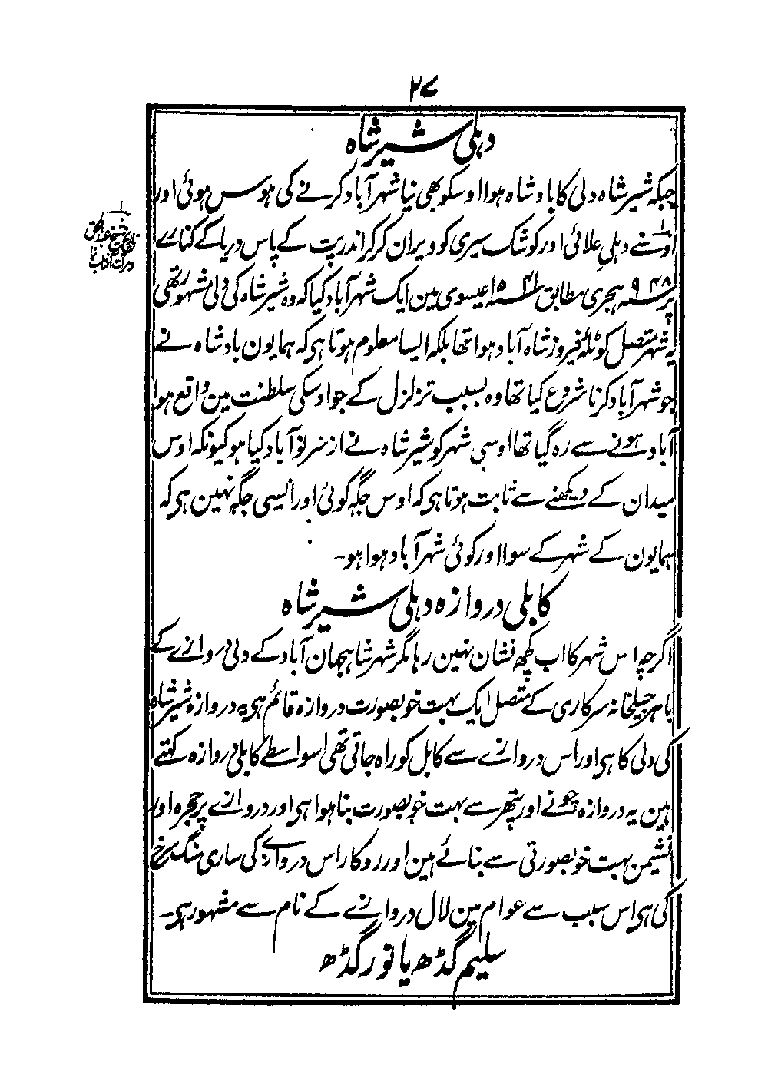 ۲۷
دہلی شیر شاہ
جبکہ شیر شاہ دلی کا بادشاہ ہوا اوسکو بھی نیا شہر آباد کرنے کی ہوس ہوئی اور
اوسنے دہلی علائی اور کوشک سیری کو ویران کر کر اندرپت کے پاس دریا کے کنارے
پر سنہ ۹۴۸ ہجری مطابق سنہ ۱۵۴۱ عیسوی مین ایک شہر آباد کیا کہ وہ شیر شاہ کی دلی مشہور تھی
یہ شہر متصل کوٹلہ فیروز شاہ آباد ہوا تھا بلکہ ایسا معلوم ہوتا ہی کہ ہمایون بادشاہ نے
جو شہر آباد کرنا شروع کیا تھا وہ بسبب تزلزل کے جو اوسکی سلطنت مین واقع ہوا
آباد ہونے سے رہ گیا تھا اوسی شہر کو شیر شاہ نے از سر نو آباد کیا ہو کیونکہ اوس
میدان کے دیکھنے سے ثابت ہوتا ہی کہ اوس جگہ کوئی اور ایسی جگہ نہین ہی کہ
ہمایون کے شہر کے سوا اور کوئی شہر آباد ہوا ہو۔
کابلی دروازہ دہلی شیر شاہ
اگرچہ اس شہر کا اب کچھ نشان نہین رہا مگر شہر شاہجہان آباد کے دلی دروازے کے
باہر جیلخانہ سرکاری کے متصل ایک بہت خوبصورت دروازہ قائم ہی یہ دروازہ شیر شاہ
کی دلی کا ہی اور اس دروازے سے کابل کو راہ جاتی تھی اسواسطے کابلی دروازہ کہتے
ہین یہ دروازہ چونے اور پتھر سے بہت خوبصورت بنا ہوا ہی اور دروازے پر حجرہ اور
نشیمن بہت خوبصورتی سے بنائے ہین اور روکار اس دروازے کی ساری سنگ سرخ
کی ہی اس سبب سے عوام مین لال دروازے کے نام سے مشہور ہی۔
سلیم گڈھ یا نور گڈھ